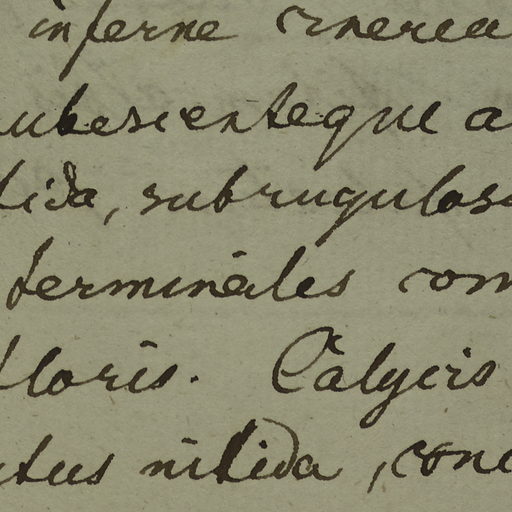 inferne cinerea
ubescenteque a
tida, subrugulosa
terminales com
floris. Calycis
tus nitida, conc